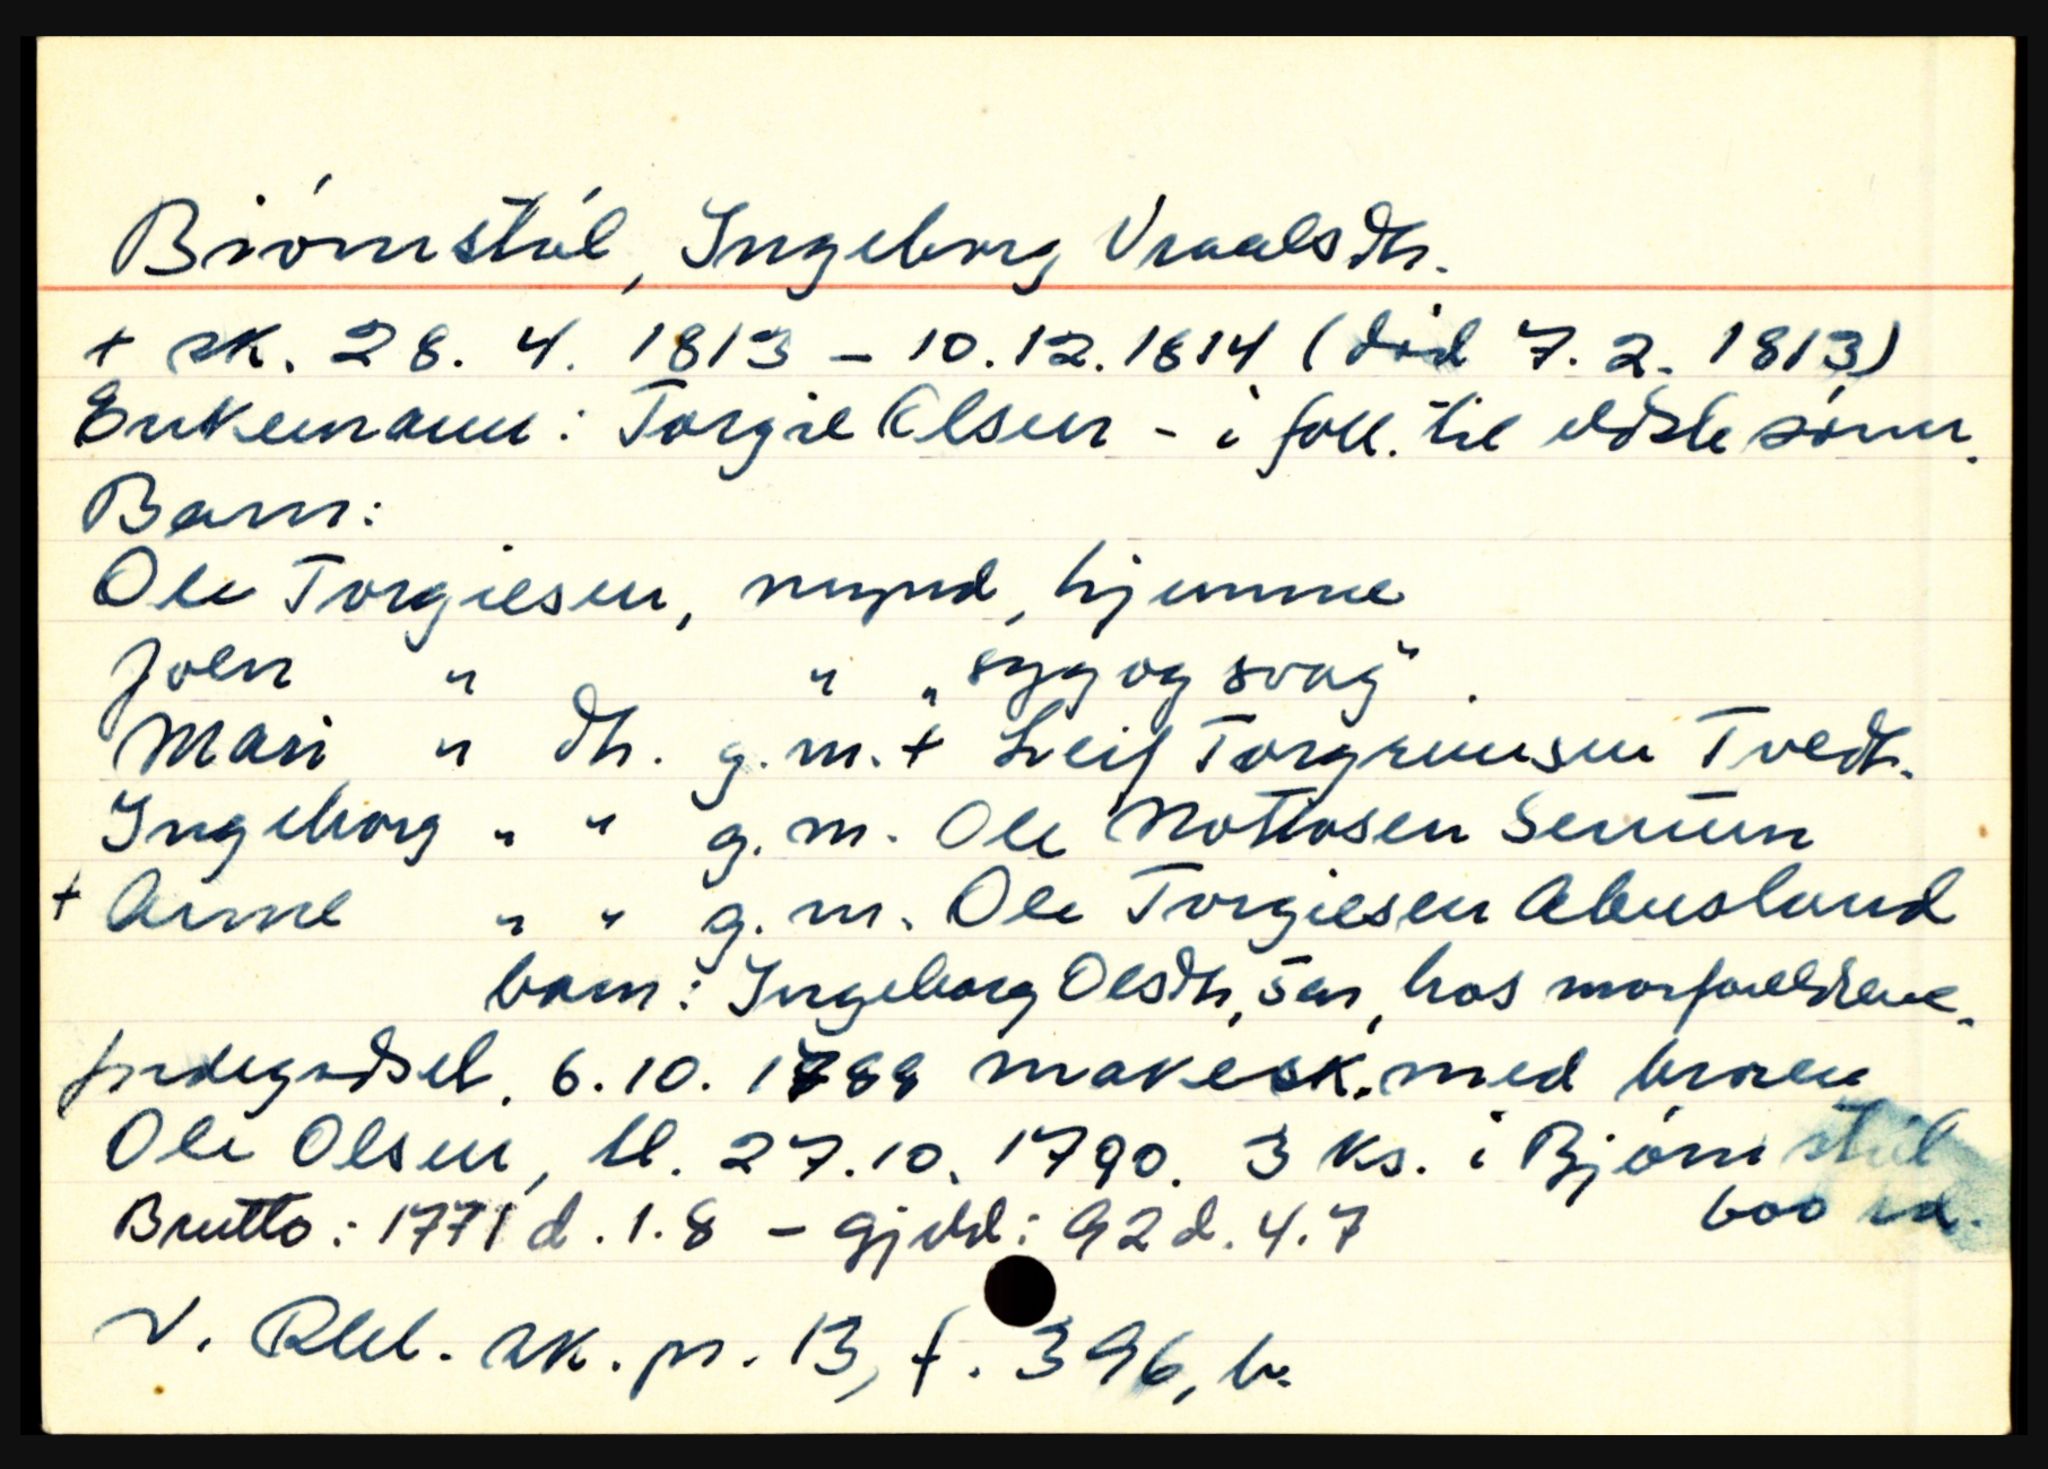 Biórnstøl, Ingeborg Vraalsdtr.
+ sk. 28. 4. 1813 - 10.12.1814 (død 7. 2. 1813)
Enkemann: Torgie Olsen - i fell. til eldste sønn.
Barn:
Ole Torgiesen, mynd, hjemme
Joen " " „syg og svag".
Mari " dtr. g.m. + Leif Torgrimsen Tvedt.
Ingeborg " " g. m. Ole Notiosen Senum
+ Anne " " g. m. Ole Torgiesen Abusland
barn: Ingeborg Olsdtr, 5 år, hos morforeldrene.
Jordegodset. 6.10. 1788 makesk. med broren
Ole Olsen, tl. 27.10. 1790. 3 ks. i Bjørnstøl
600 rd.
Brutto: 1771 d. 1. 8 - gjeld: 92 d. 4. 7
V. Rbl. sk. pr. 13, f. 396, b.